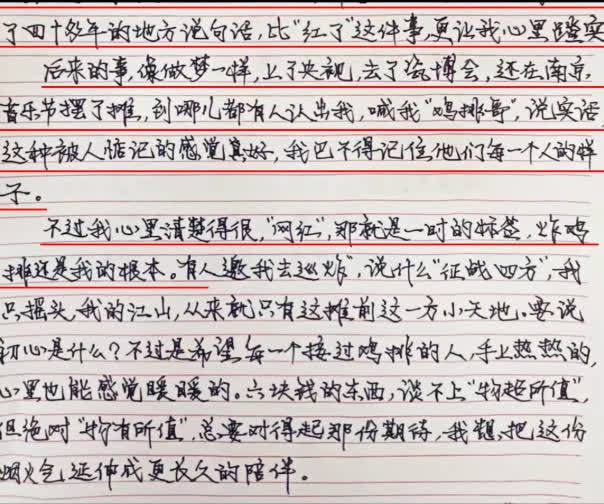 了四十多年的地方说句话，比“红了”这件事，更让我心里踏实
后来的事，像做梦一样，上了央视，去了瓷博会，还在南京
音乐节摆了摊，到哪儿都有人认出我，喊我“鸡排哥”，说实话
这种被人惦记的感觉真好，我巴不得记住他们每一个人的样
子。
不过我心里清楚得很，“网红”，那就是一时的标签，炸鸡
排还是我的根本。有人邀我去巡炸”，说什么“征战四方”，我
只摇头，我的江山，从来就只有这摊前这一方小天地。要说
初心是什么？不过是希望每一个接过鸡排的人，手上热热的，
心里也能感觉暖暖的。六块钱的东西，谈不上“物超所值”，
但绝对“物有所值”，总要对得起那份期待，我想，把这份
烟火气延伸成更长久的陪伴。